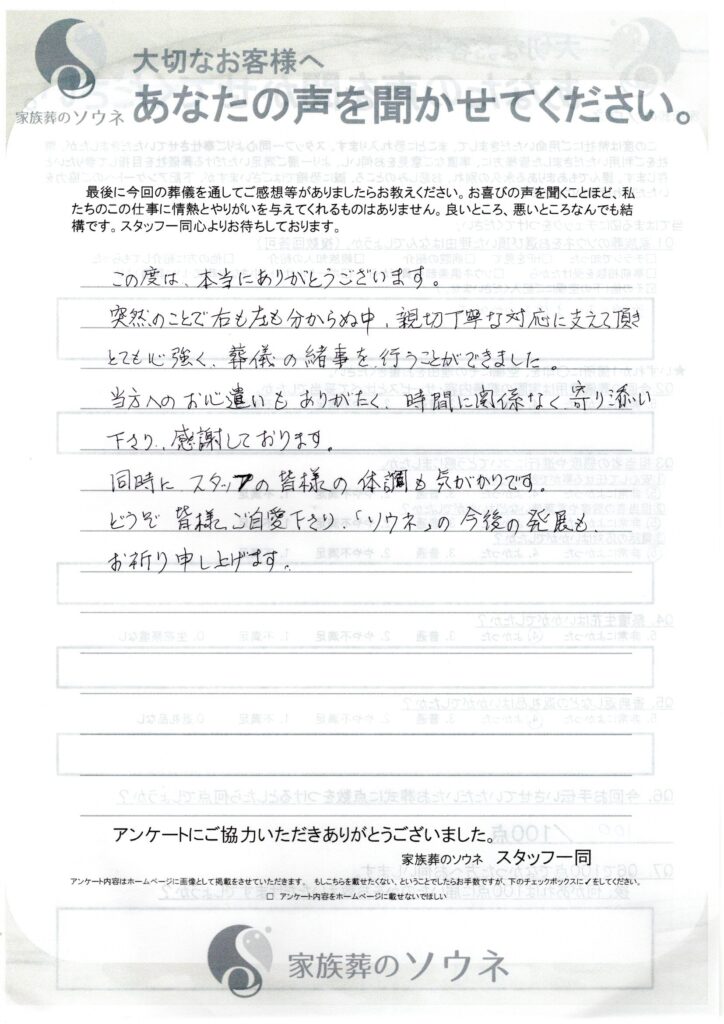 大切なお客様へ
あなたの声を聞かせてください。
家族葬のソウネ
最後に今回の葬儀を通してご感想等がありましたらお教えください。お喜びの声を聞くことほど、私
たちのこの仕事に情熱とやりがいを与えてくれるものはありません。良いところ、悪いところなんでも結
構です。スタッフ一同心よりお待ちしております。
この度は、本当にありがとうございます。
突然のことで右も左も分からぬ中、親切丁寧な対応に支えて頂き
とても心強く、葬儀の緒事を行うことができました。
当方へのお心遣いもありがたく、時間に関係なく寄り添い
下さり、感謝しております。
同時にスタッフの皆様の体調も気がかりです。
どうぞ皆様、ご自愛下さり、「ソウネ」の今後の発展も、
お祈り申し上げます。
アンケートにご協力いただきありがとうございました。
家族葬のソウネ スタッフ一同
アンケート内容はホームページに画像として掲載をさせていただきます。 もしこちらを載せたくない、ということでしたらお手数ですが、下のチェックボックスに✓をしてください。
□ アンケート内容をホームページに載せないでほしい
家族葬のソウネ